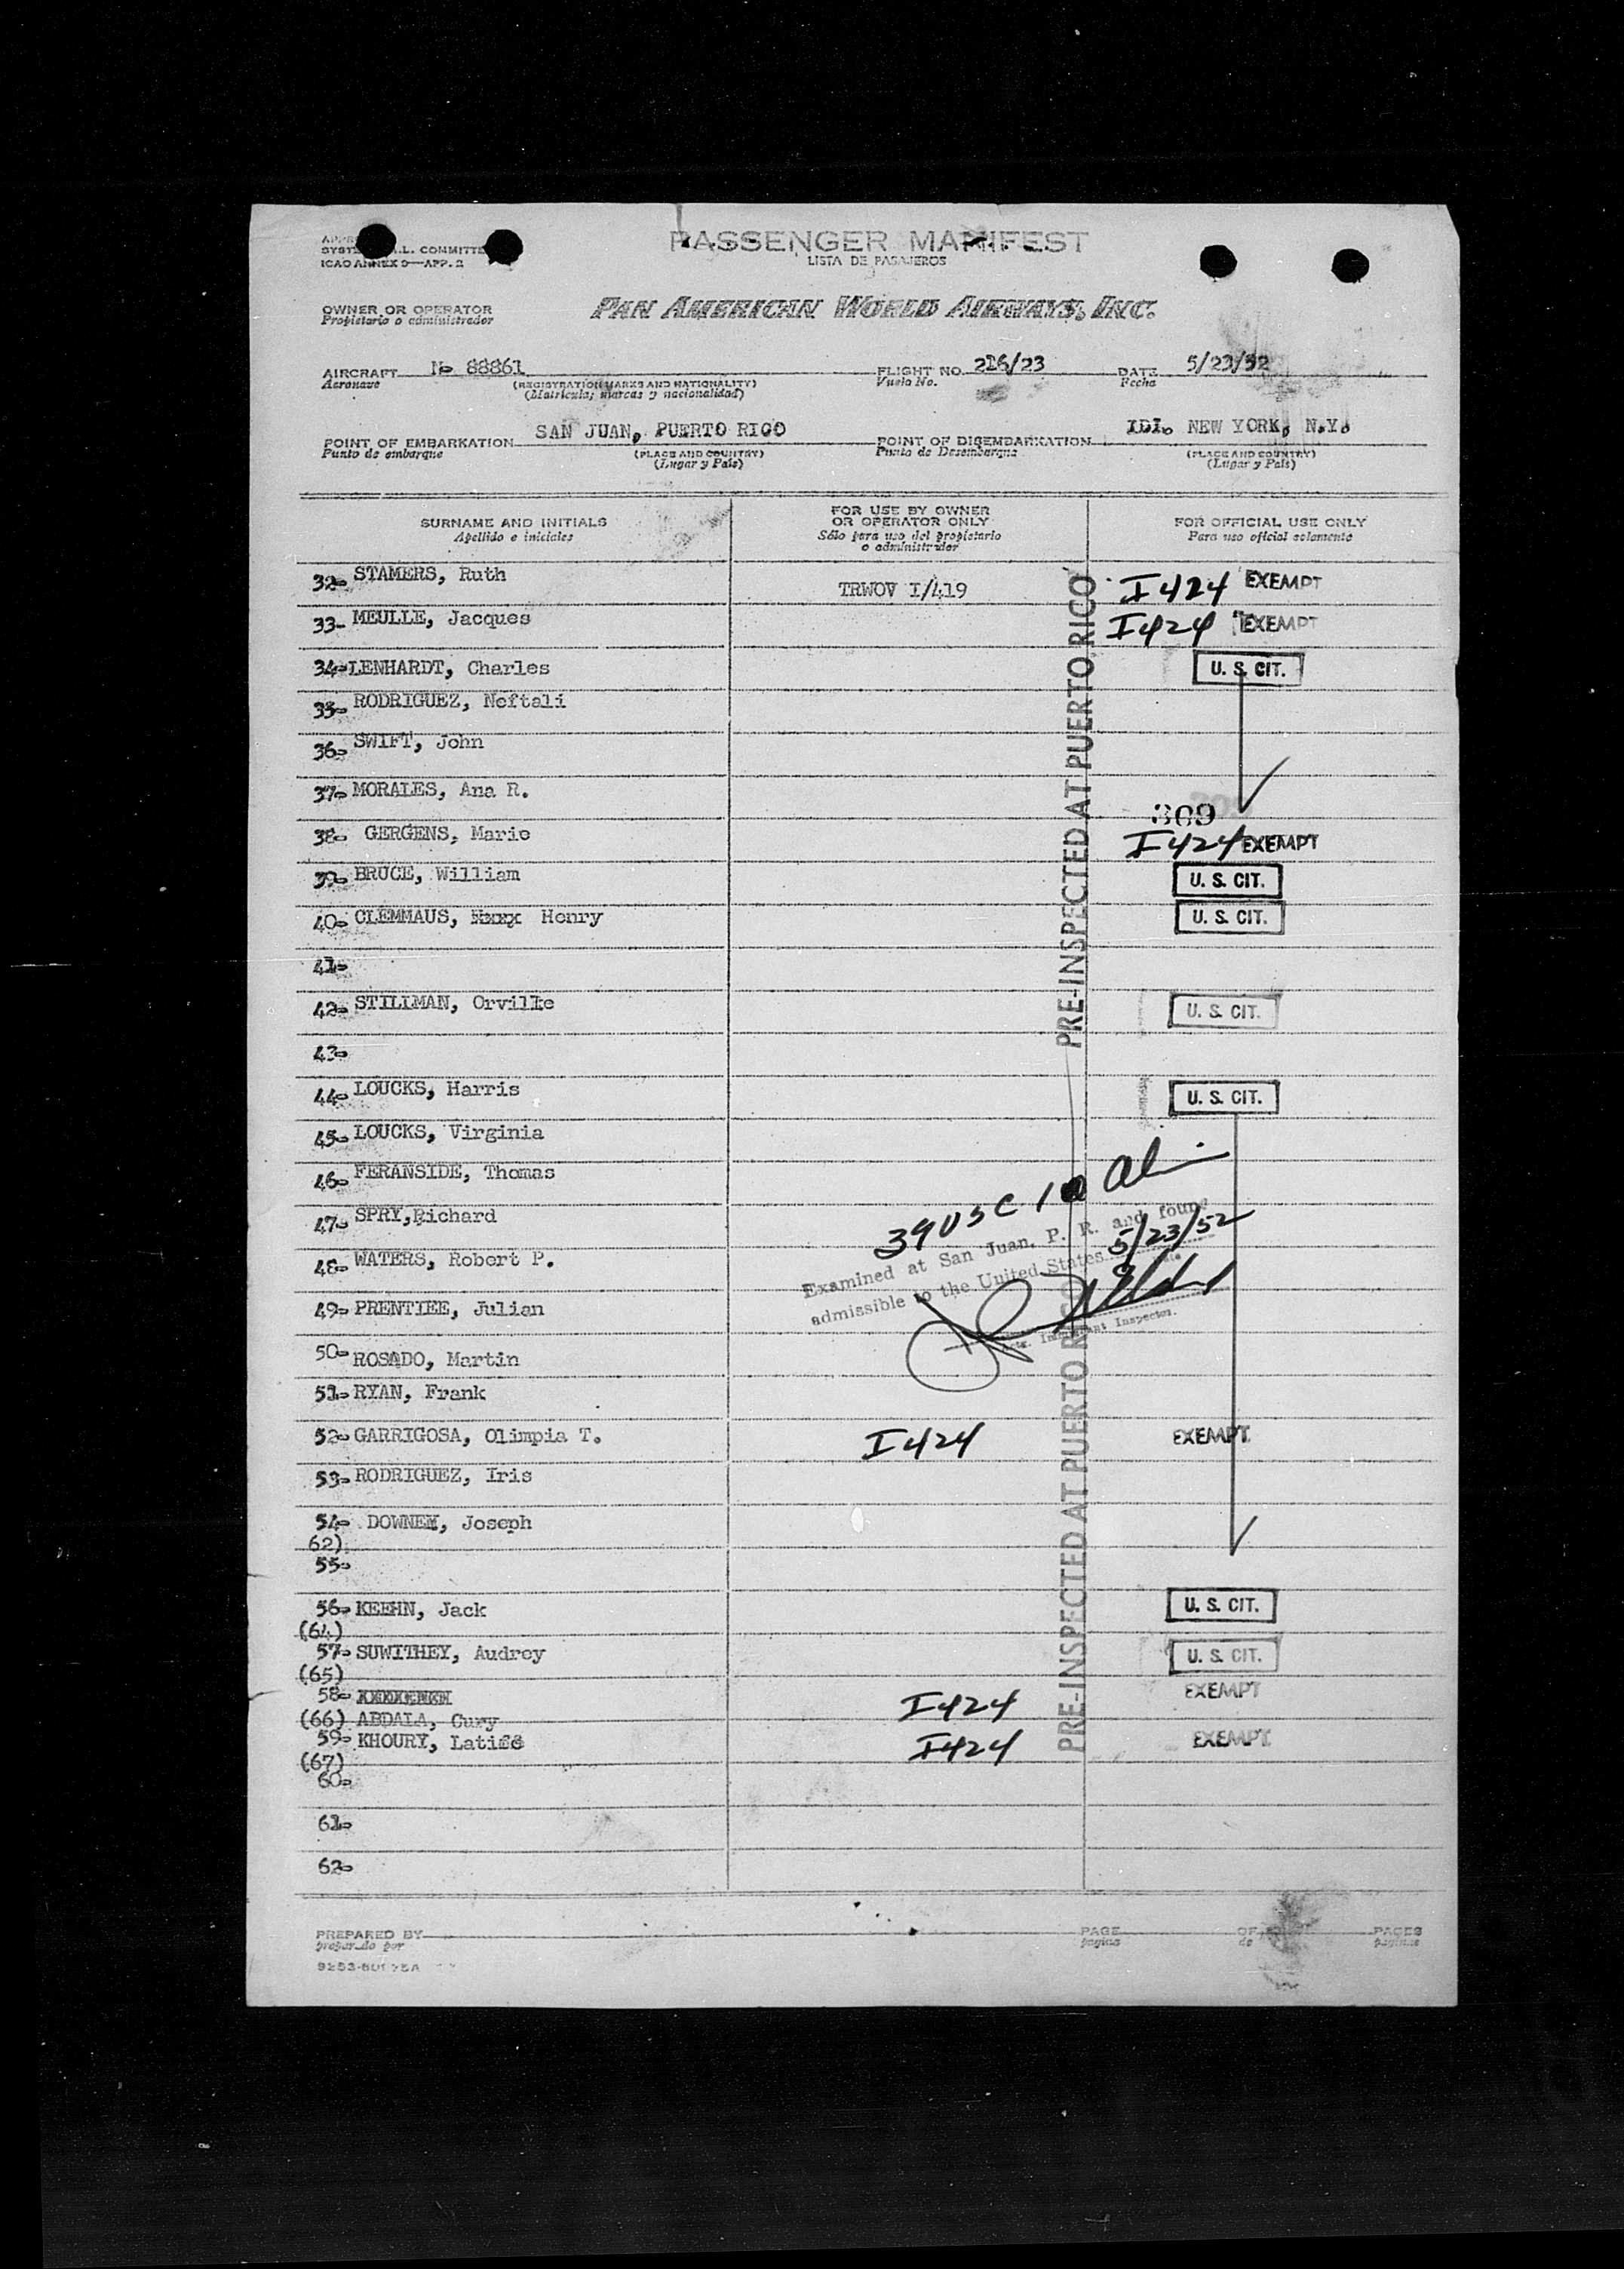 PASSENGER MANIFEST
LISTA DE PASAJEROS
SYSTEM COMMITTEE
ICAO ANNEX 9—APP. 2
OWNER OR OPERATOR
Propietario o administrador
PAN AMERICAN WORLD AIRWAYS, INC.
AIRCRAFT N- 88861 FLIGHT NO. 216/23 DATE 5/23/52
Aeronave (REGISTRATION MARKS AND NATIONALITY) Vuelo No. Fecha
(Matricula, marcas y nacionalidad)
POINT OF EMBARKATION SAN JUAN, PUERTO RICO POINT OF DISEMBARKATION IDL. NEW YORK, N.Y.
Punto de embarque (PLACE AND COUNTRY) Punto de Desembarque (PLACE AND COUNTRY)
(Lugar y País) (Lugar y País)
SURNAME AND INITIALS
Apellido e iniciales
FOR USE BY OWNER
OR OPERATOR ONLY
Sólo para uso del propietario
o administrador
FOR OFFICIAL USE ONLY
Para uso oficial solamente
32- STAMERS, Ruth TRWOV I/419 I424 EXEMPT
33- MEULLE, Jacques I424 EXEMPT
34- LENHARDT, Charles U. S. CIT.
35- RODRIGUEZ, Neftali
36- SWIFT, John
37- MORALES, Ana R.
309
38- GERGENS, Marie I424 EXEMPT
39- BRUCE, William U. S. CIT.
40- CLEMMAUS, Henry U. S. CIT.
41-
42- STILLMAN, Orville U. S. CIT.
43-
44- LOUCKS, Harris U. S. CIT.
45- LOUCKS, Virginia
46- FERANSIDE, Thomas
47- SPRY, Richard
48- WATERS, Robert P.
49- PRENTIEE, Julian
50- ROSADO, Martin
51- RYAN, Frank
52- GARRIGOSA, Olimpia T. I424 EXEMPT
53- RODRIGUEZ, Iris
54- DOWNEY, Joseph
62)
55-
56- KEEHN, Jack U. S. CIT.
(64)
57- SUWITHEY, Audrey U. S. CIT.
(65)
58- EXEMPT
(66) ABDALA, Cury I424
59- KHOURY, Latife I424 EXEMPT
(67)
60-
61-
62-
PRE-INSPECTED AT PUERTO RICO
39 USC
5/23/52
Examined at San Juan, P. R. and found
admissible to the United States
Immigrant Inspector.
PRE-INSPECTED AT PUERTO RICO
PREPARED BY PAGE OF PAGES
preparado por pagina de paginas